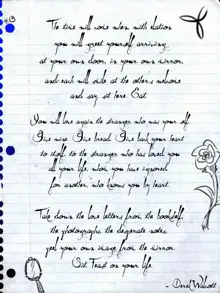 The time will come when, with elation
you will greet yourself arriving
at your own door, in your own mirror
and each will smile at the other's welcome
and say, sit here. Eat.
You will love again the stranger who was your self
Give wine. Give bread. Give back your heart
to itself, to the stranger who has loved you
all your life, whom you have ignored
for another, who knows you by heart.
Take down the love letters from the bookshelf
the photographs, the desperate notes,
peel your own image from the mirror.
Sit. Feast on your life.
- Derek Walcott